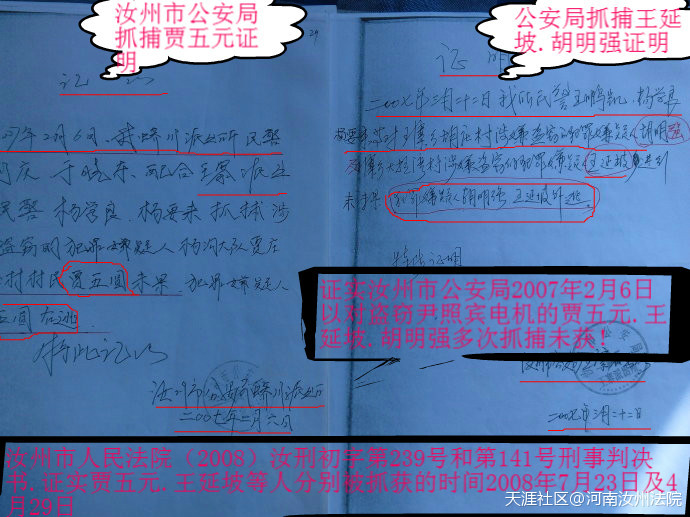 汝州市公安局
抓捕贾五元证
明
公安局抓捕王延
坡.胡明强证明
29
证
证 明
07年2月6日,我蟒川派出所民警
二00七年三月二十二日我所民警王鹏凯、杨学良
于晓东,配合王寨派出
民警杨学良、杨要来抓捕涉
盗窃的犯罪嫌疑人杨沟大队贾庄
村村民贾五圆未果,犯罪嫌疑人
五圆在逃.
特此证明
汝州市公安局蟒川派出所
二00七年二月六日
胡明强
王延坡
未果
犯罪嫌疑人胡明强、王延坡外逃。
特此证明
证实汝州市公安局2007年2月6日
以对盗窃尹照宾电机的贾五元.王
延坡.胡明强多次抓捕未获!
二00七年三月二十二日
汝州市人民法院（2008）汝刑初字第239号和第141号刑事判决
书.证实贾五元.王延坡等人分别被抓获的时间2008年7月23日及4
月29日
天涯社区@河南汝州法院